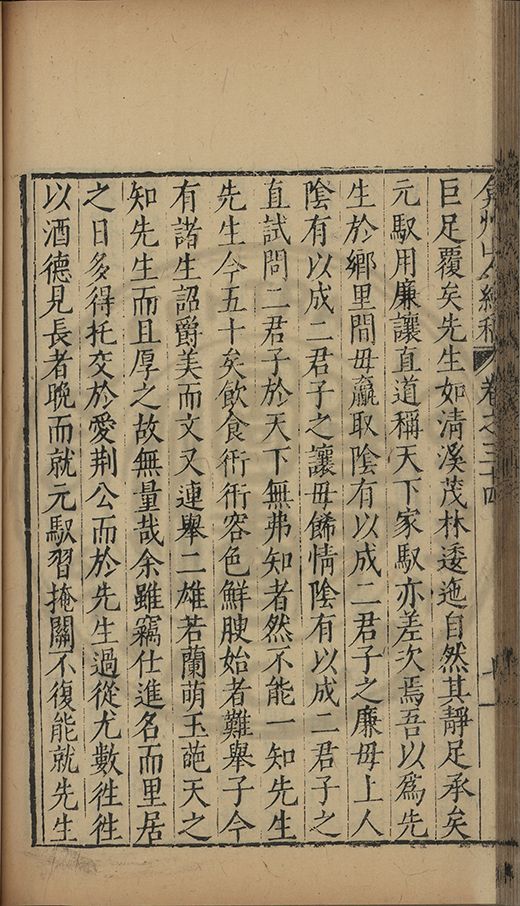 弇州山人續稿 卷之三十四
巨足覆矣先生如清溪茂林逶迤自然其靜足承矣
元馭用廉讓直道稱天下家馭亦差次焉吾以爲先
生於鄉里間毋贏取陰有以成二君子之廉毋上人
陰有以成二君子之讓毋餙情陰有以成二君子之
直試問二君子於天下無弗知者然不能一知先生
先生今五十矣飲食衎衎容色鮮腴始者難舉子今
有諸生詔爵美而文又連舉二雄若蘭萌玉葩天之
知先生而且厚之故無量哉余雖竊仕進名而里居
之日多得托交於愛荆公而於先生過從尤數徃徃
以酒德見長者晩而就元馭習掩關不復能就先生